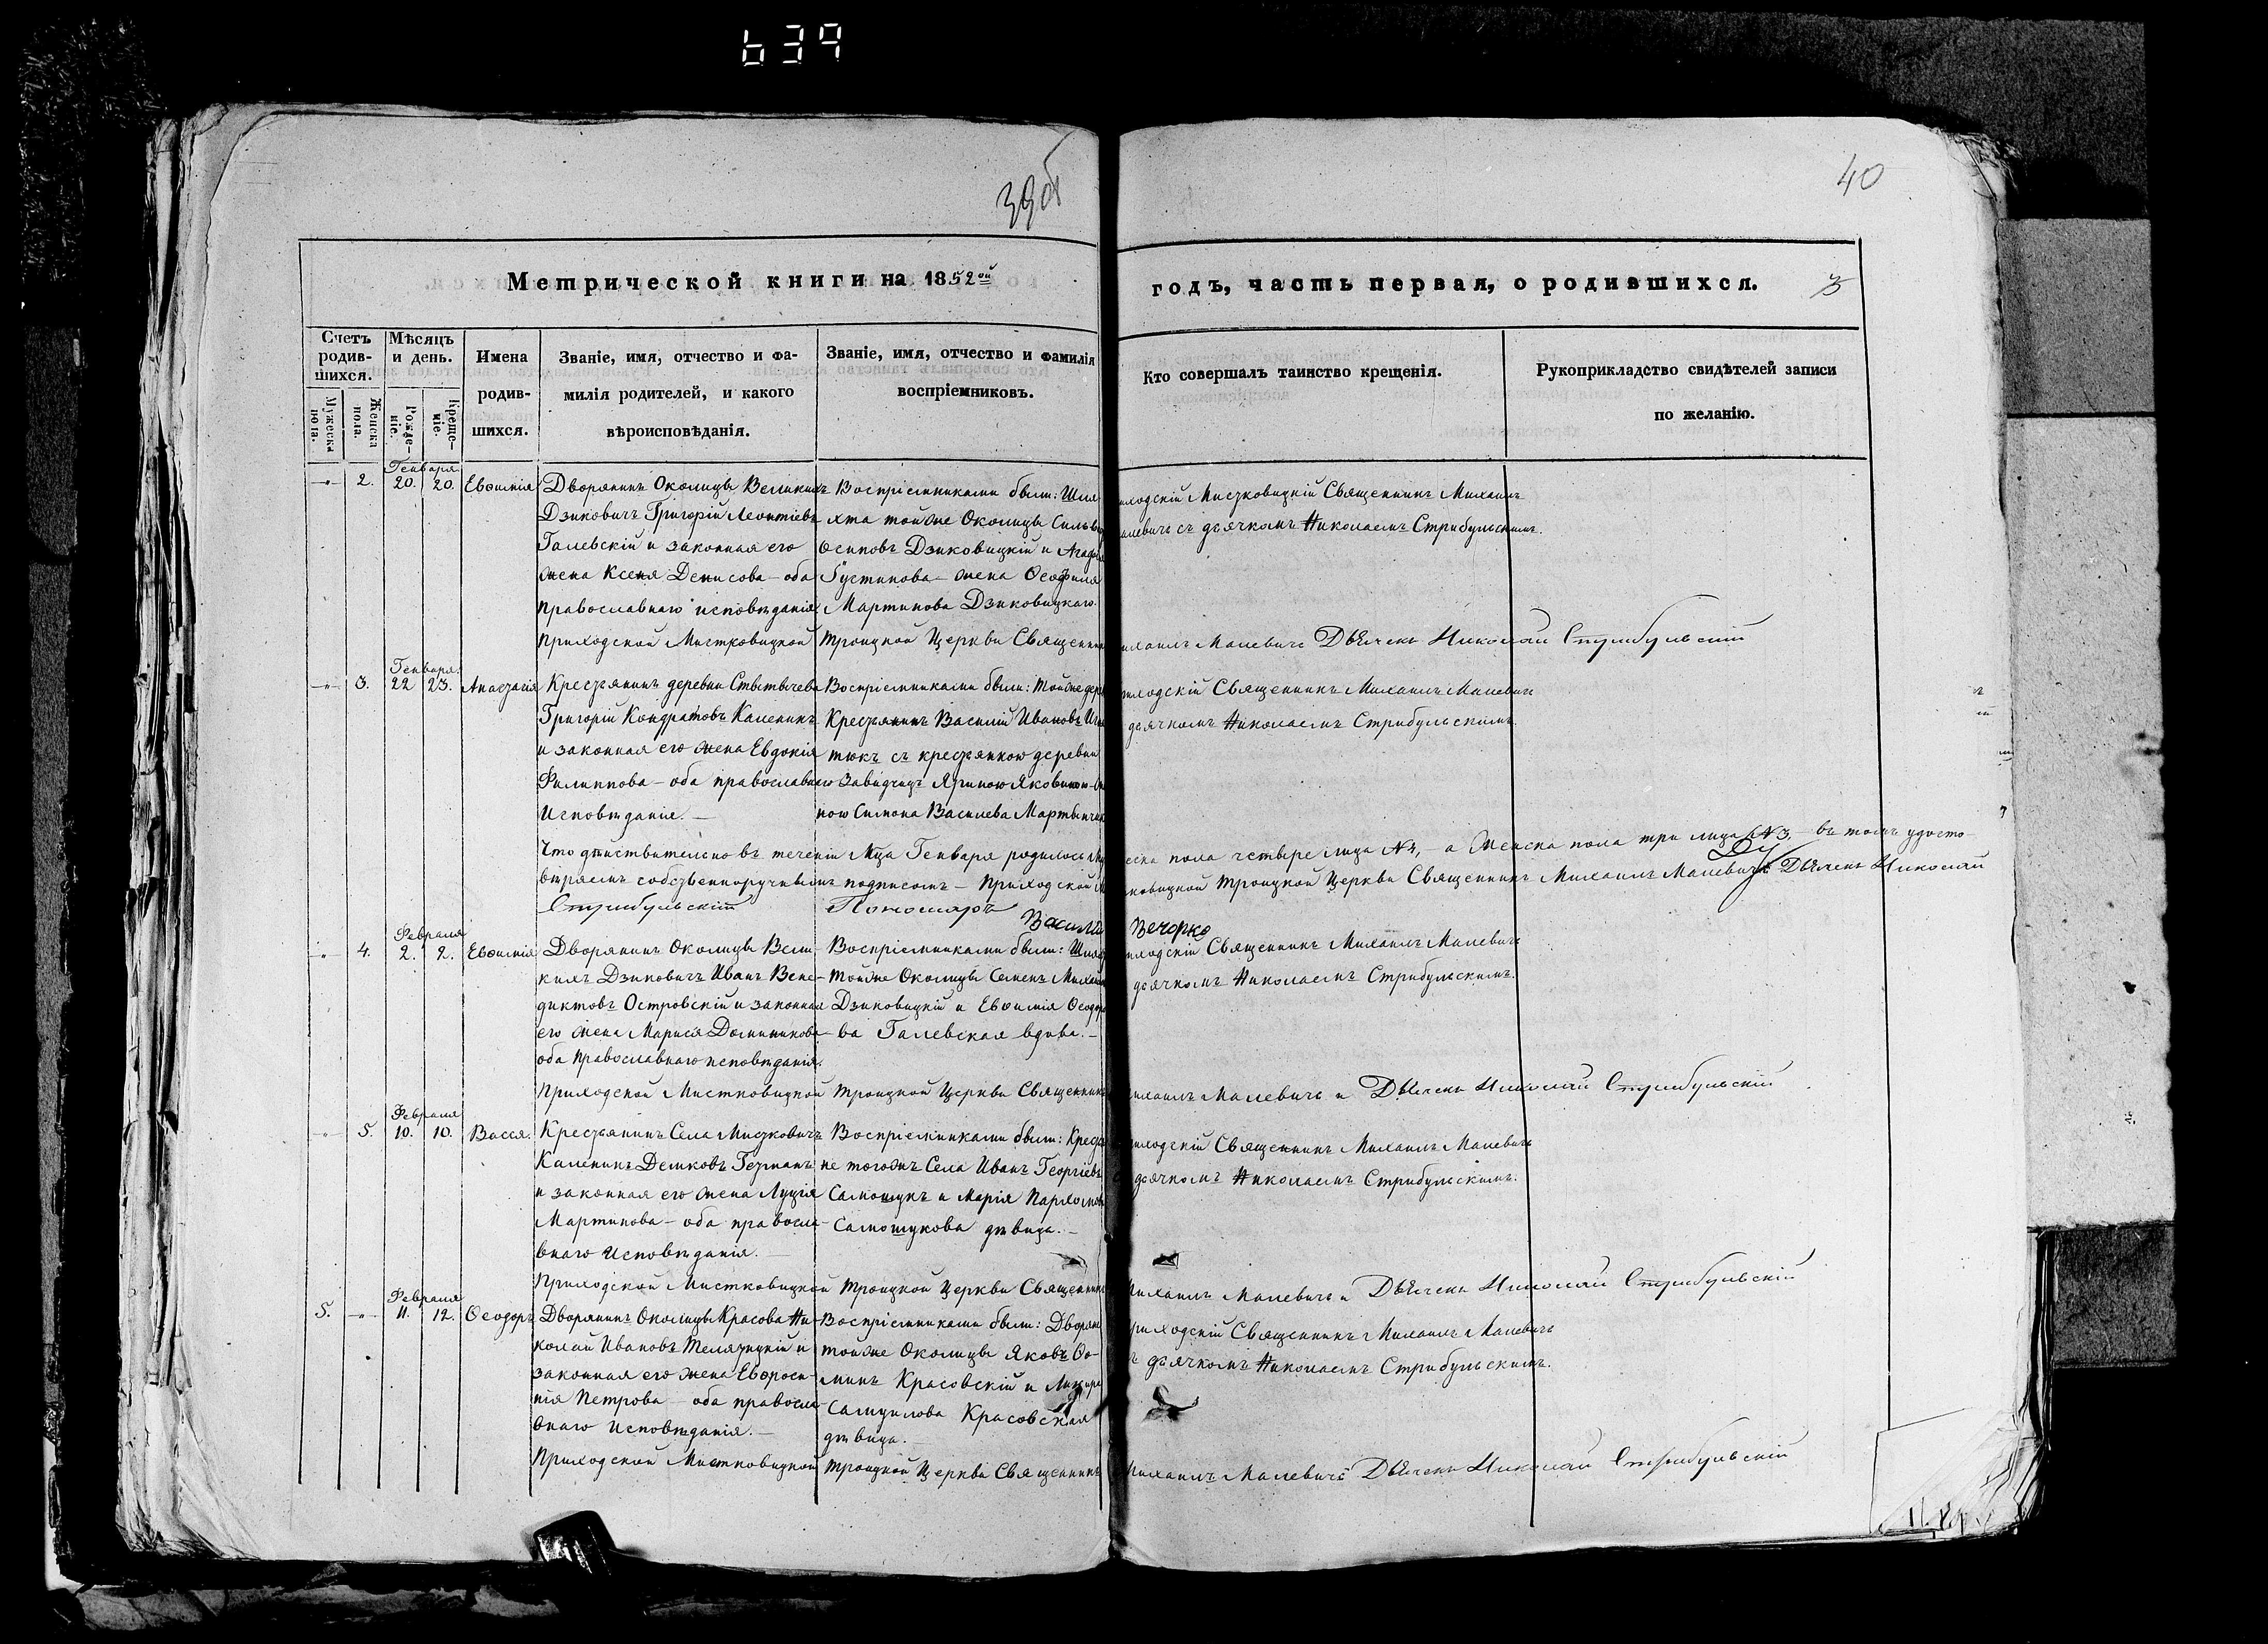 639
39об
40
Метрической книги на 1852ой
годъ, часть первая, о родившихся.
3
Счетъ родив-шихся.
Мѣсяцъ и день.
Имена родив-шихся.
Званіе, имя, отчество и фа-милія родителей, и какого вѣроисповѣданія.
Званіе, имя, отчество и фамилія воспріемниковъ.
Кто совершалъ таинство крещенія.
Рукоприкладство свидѣтелей записи по желанію.
Мужеска пола.
Женска пола.
Рожде-ніе.
Креще-ніе.
Генваря
2. 20. 20. Евѳимія
Дворянинъ Околицы Великихъ
Дзиковичъ Григорій Леонтіевъ
Галевскій и законная его
жена Ксеня Денисова – оба
православнаго исповѣданія
Воспріемниками были: Шля
хта тойже Околицы Сильве
Осиповъ Дзиковицкій и Агафія
Густинова – жена Ѳеофила
Мартинова Дзиковицкаго.
иходскій Мистковицкій Священникъ Михаилъ
алевичъ съ дьячкомъ Николаемъ Стрибульскимъ.
Приходской Мистковицкой Троицкой Церкви Священник
ихаилъ Малевичъ Дьячекъ Николай Стрибульскій
Генваря
3. 22 23. Анастасія
Крестьянинъ деревни Ствтычева
Григорій Кондратовъ Каленикъ
и законная его жена Евдокія
Филиппова – оба православнаго
Исповѣданія. –
Воспріемниками были: Тойже дер
Крестьянинъ Василій Ивановъ Игна
тюкъ съ крестьянкою деревни
Завидчицъ Яриною Яковиною
ною Симона Василева Мартынчик
иходскій Священникъ Михаилъ Малевичъ
дьячкомъ Николаемъ Стрибульскимъ.
Что дѣйствительно въ теченіи Мца Генваря родилось Му
еска пола четыре лица №4, – а Женска пола три лица №3. – въ томъ удосто
вѣряемъ собственноручнымъ подписомъ – Приходской М
ковицкой Троицкой Церкви Священникъ Михаилъ Малевичъ Дьячекъ Николай
Стрибульскій Пономарь Василій Вечорко
Февраля
4. 2. 2. Евѳимія
Дворянинъ Околицы Вели-
кихъ Дзиковичъ Иванъ Вене-
диктовъ Островскій и законная
его жена Марися Доминикова
оба Православнаго исповѣданія.
Воспріемниками были: Шлях
тойже Околицы Семенъ Михаил
Дзиковицкій и Евѳимія Ѳеодоро
ва Галевская вдова. –
иходскій Священникъ Михаилъ Малевичъ
дьячкомъ Николаемъ Стрибульскимъ.
Приходской Мистковицкой Троицкой Церкви Священникъ
ихаилъ Малевичъ и Дьячекъ Николай Стрибульскій
Февраля
5. 10. 10. Васся.
Крестьянинъ Села Мистковичъ
Каленикъ Демковъ Гетманъ
и законная его жена Луція
Мартинова – оба правосла-
внаго Исповѣданія. –
Воспріемниками были: Крестья
не тогожъ Села Иванъ Георгіевъ
Самошукъ и Марія Пархомова
Самошукова дѣвица. –
иходскій Священникъ Михаилъ Малевичъ
дьячкомъ Николаемъ Стрибульскимъ.
Приходской Мистковицкой Троицкой Церкви Священникъ
Михаилъ Малевичъ и Дьячекъ Николай Стрибульскій
Февраля
5. 11. 12. Ѳеодоръ
Дворянинъ Околицы Красова Ни-
колай Ивановъ Теляхнцкій и
законная его жена Евфроси-
нія Петрова – оба правосла-
внаго Исповѣданія. –
Воспріемниками были: Дворян
тойже Околицы Яковъ Ѳо-
минъ Красовскій и
Самуилова Красовская
дѣвица. –
риходскій Священникъ Михаилъ Малевичъ
ъ дьячкомъ Николаемъ Стрибульскимъ.
Приходской Мистковицкой Троицкой Церкви Священникъ
Михаилъ Малевичъ Дьячекъ Николай Стрибульскій